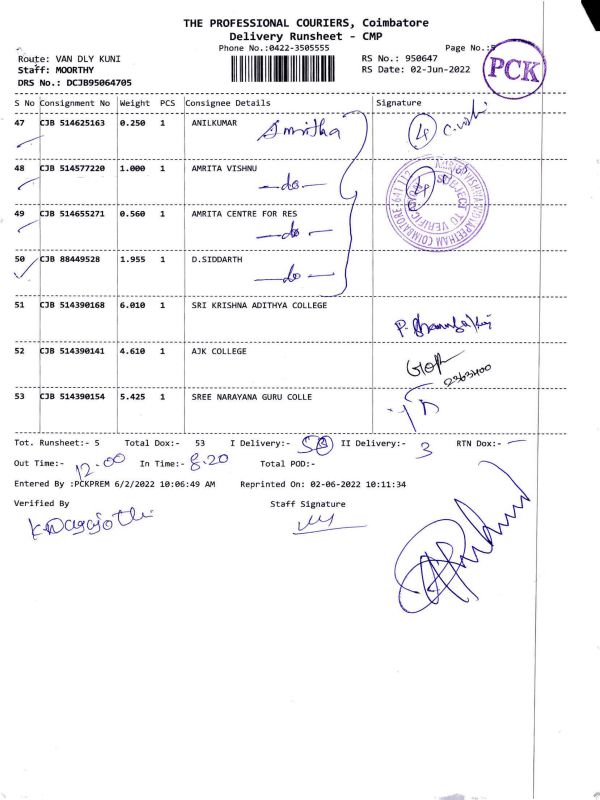 THE PROFESSIONAL COURIERS, Coimbatore
Delivery Runsheet - CMP
Phone No.:0422-3505555 Page No.:5
Route: VAN DLY KUNI RS No.: 950647
Staff: MOORTHY RS Date: 02-Jun-2022
DRS No.: DCJB95064705
PCK
S No Consignment No Weight PCS Consignee Details Signature
47 CJB 514625163 0.250 1 ANILKUMAR
Amritha
4
48 CJB 514577220 1.000 1 AMRITA VISHNU
-do-
49 CJB 514655271 0.560 1 AMRITA CENTRE FOR RES
-do-
50 CJB 88449528 1.955 1 D.SIDDARTH
-do-
51 CJB 514390168 6.010 1 SRI KRISHNA ADITHYA COLLEGE
52 CJB 514390141 4.610 1 AJK COLLEGE
53 CJB 514390154 5.425 1 SREE NARAYANA GURU COLLE
Tot. Runsheet:- 5 Total Dox:- 53 I Delivery:- 50 II Delivery:- 3 RTN Dox:- -
Out Time:- 12.00 In Time:- 8.20 Total POD:-
Entered By :PCKPREM 6/2/2022 10:06:49 AM Reprinted On: 02-06-2022 10:11:34
Verified By Staff Signature